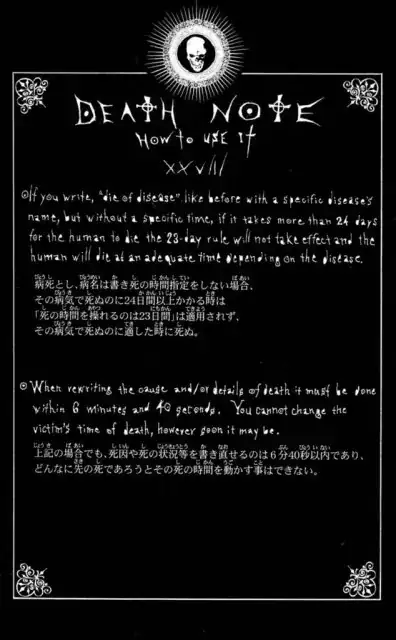 DEATH NOTE
How to use it
XXVIII
If you write, "die of disease" like before with a specific disease's
name, but without a specific time, if it takes more than 24 days
for the human to die the 23-day rule will not take effect and the
human will die at an adequate time depending on the disease.
病死とし、病名は書き死の時間指定をしない場合、
その病気で死ぬのに24日間以上かかる時は
「死の時間を操れるのは23日間」は適用されず、
その病気で死ぬのに適した時に死ぬ。
When rewriting the cause and/or details of death it must be done
within 6 minutes and 40 seconds. You cannot change the
victim's time of death, however soon it may be.
上記の場合でも、死因や死の状況等を書き直せるのは6分40秒以内であり、
どんなに先の死であろうとその死の時間を動かす事はできない。